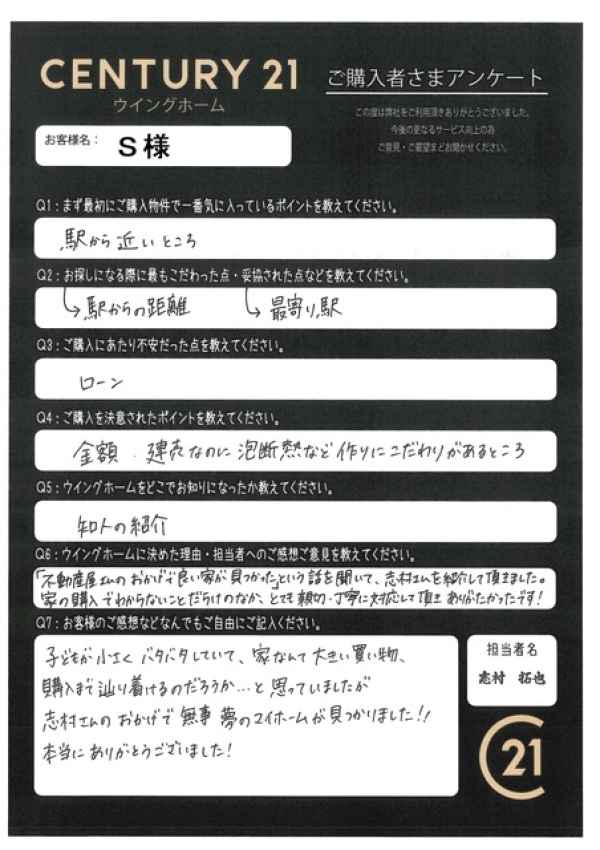 CENTURY 21
ウイングホーム
ご購入者さまアンケート
この度は弊社をご利用頂きありがとうございました。
今後の更なるサービス向上の為
ご意見・ご要望までお聞かせください。
お客様名: S様
Q1:まず最初にご購入物件で一番気に入っているポイントを教えてください。
駅から近いところ
Q2:お探しになる際に最もこだわった点・妥協された点などを教えてください。
↳駅からの距離 ↳最寄り駅
Q3:ご購入にあたり不安だった点を教えてください。
ローン
Q4:ご購入を決意されたポイントを教えてください。
金額. 建売なのに泡断熱など作りにこだわりがあるところ
Q5:ウイングホームをどこでお知りになったか教えてください。
知人の紹介
Q6:ウイングホームに決めた理由・担当者へのご感想ご意見を教えてください。
「不動産屋さんのおかげで良い家が見つかった」という話を聞いて、志村さんを紹介して頂きました。
家の購入でわからないことだらけのなか、とても親切・丁寧に対応して頂き ありがたかったです!
Q7:お客様のご感想などなんでもご自由にご記入ください。
子どもが小さくバタバタしていて、家なんて大きい買い物、
購入まで辿り着けるのだろうか…と思っていましたが
志村さんのおかげで無事夢のマイホームが見つかりました!!
本当にありがとうございました!
担当者名
志村 拓也
21